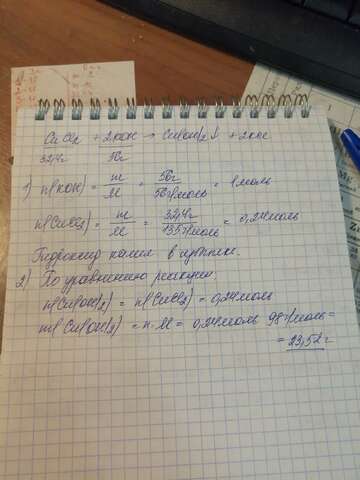 CuCl₂ + 2KOH → Cu(OH)₂↓ + 2KCl
32,4г 56г
1) n(KOH) = m/M = 56г/56г/моль = 1моль
n(CuCl₂) = m/M = 32,4г/135г/моль = 0,24моль
Гидроксид калия в избытке.
2) По уравнению реакции:
n(Cu(OH)₂) = n(CuCl₂) = 0,24моль
m(Cu(OH)₂) = n·M = 0,24моль 98г/моль =
= 23,52г